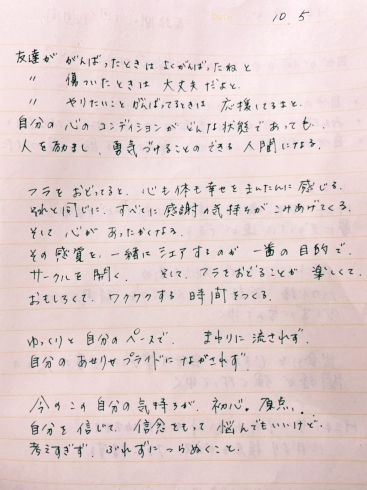 10.5
友達が がんばったときは よくがんばったねと
〃 傷ついたときは 大丈夫だよと.
〃 やりたいこと がんばってるときは 応援してるよと.
自分の 心の コンディションが どんな状態であっても.
人を励まし、勇気づけることのできる 人間になる.
フラを おどってると、心も体も幸せを
それと同じに、すべてに感謝の気持ちが こみあげてくる.
そして 心が あったかくなる.
その感覚を、一緒に シェアするのが 一番の目的で.
サークルを 開く. そして、フラをおどることが 楽しくて.
おもしろくて. ワクワクする 時間をつくる.
ゆっくりと 自分のペースで. まわりに 流されず.
自分の あせりやプライドに ながされず.
今のこの自分の気持ちが、初心。原点.
自分を信じて. 信念をもって 悩んでもいいけど.
考えすぎず ぶれずに つらぬくこと.